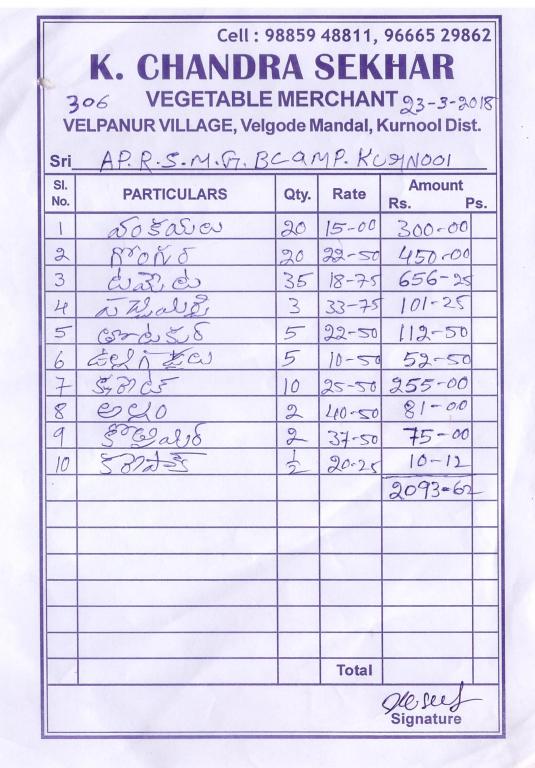 Cell : 98859 48811, 96665 29862
K. CHANDRA SEKHAR
306 VEGETABLE MERCHANT 23-3-2018
VELPANUR VILLAGE, Velgode Mandal, Kurnool Dist.
Sri AP.R.S.M.G. BCAMP. KURNOOl
Sl. No. PARTICULARS Qty. Rate Amount Rs. Ps.
1 వంకాయలు 20 15-00 300-00
2 గోంగూర 20 22-50 450-00
3 టమోటా 35 18-75 656-25
4 పచ్చిమిర్చి 3 33-75 101-25
5 తోటకూర 5 22-50 112-50
6 ఉల్లిగడ్డలు 5 10-50 52-50
7 క్యారెట్ 10 25-50 255-00
8 అల్లం 2 40-50 81-00
9 కొత్తిమీర 2 37-50 75-00
10 కరివేపాక్ ½ 20-25 10-12
2093-62
Total
Signature